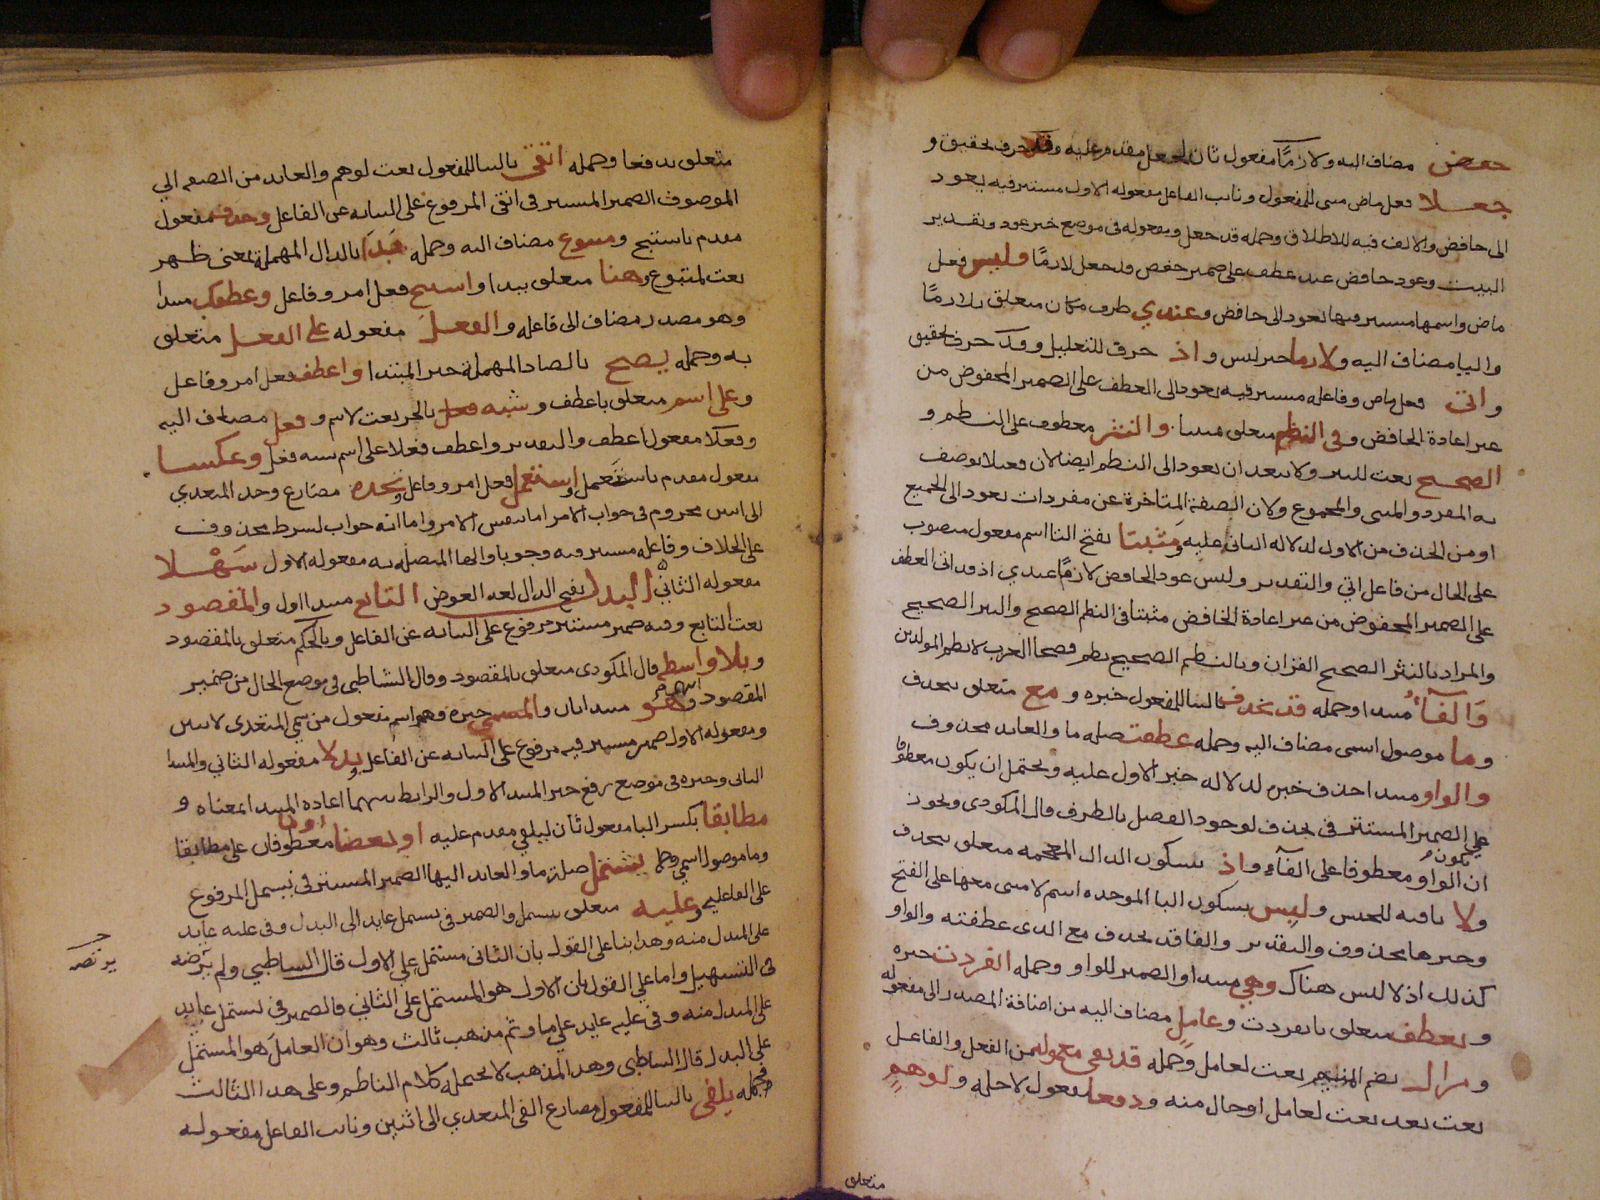 خفض مضاف اليه ولازما مفعول ثان لجعل مقدم عليه وقد حرف تحقيق و
جعلا فعل ماض مبنى للمفعول ونايب الفاعل مفعوله الاول مستتر فيه يعود
الى خافض والالف فيه للاطلاق وجملة قد جعل ومفعوله فى موضع خبر عود وتقدير
البيت وعود خافض عند عطف على ضمير خفض قد جعل لازما وليس فعل
ماض واسمها مستتر فيها يعود الى خافض وعندي ظرف مكان متعلق بلازما
واليا مضاف اليه ولازما خبر ليس واذ حرف للتعليل وقد حرف تحقيق
واتى فعل ماض وفاعله مستتر فيه يعود الى العطف على الضمير المخفوض من
غير اعادة الخافض وفى النظم متعلق والنثر معطوف على النظم و
الصحيح نعت للنثر ولا يبعد ان يعود الى النظم ايضا لان فعيلا يوصف
به المفرد والمثنى والمجموع ولان الصفة المتاخرة عن مفردات تعود الى الجميع
او من الحذف من الاول لدلالة الثانى عليه ومثبتا بفتح البا اسم مفعول منصوب
على الحال من فاعل اتي والتقدير وليس عود الخافض لازما عندي اذ قد اتى العطف
على الضمير المخفوض من غير اعادة الخافض مثبتا فى النظم الصحيح والنثر الصحيح
والمراد بالنثر الصحيح القران وبالنظم الصحيح نظم فصحا العرب لا نظم المولدين
والفآء مبتدا وجملة قد تحذف بالبنا للمفعول خبره ومع متعلق بتحذف
وما موصول اسمى مضاف اليه وجملة عطفت صلة ما والعايد محذوف
والواو مبتدا حذف خبره لدلالة خبر الاول عليه ويحتمل ان يكون معطوفا
على الضمير المستتر فى تحذف لوجود الفصل بالظرف قال المكودى ويجوز
ان يكون الواو معطوفا على الفآء واذ بسكون الذال المعجمة متعلق بتحذف
ولا نافية للجنس ولبس بسكون البا الموحده اسم لا مبنى معها على الفتح
وخبرها محذوف والتقدير والفا قد تحذف مع الذى عطفته والواو
كذلك اذ لا لبس هناك وهى مبتدا والضمير للواو وجملة انفردت خبره
وبعطف متعلق بانفردت وعامل مضاف اليه من اضافة المصدر الى مفعوله
ومزال بضم الميم نعت لعامل وجملة قد بقى معموله من الفعل والفاعل
نعت بعد نعت لعامل او حال منه ودفعا مفعول لاجله ولوهم
متعلق
متعلق بدفعا وجملة اتقى بالبنا للمفعول نعت لوهم والعايد من الصفة الي
الموصوف الضمير المستتر فى اتقى المرفوع على النيابة عن الفاعل وحذف مفعول
مقدم باستبح ومتبوع مضاف اليه وجملة بدا بالدال المهملة بمعنى ظهر
نعت لمتبوع وهنا متعلق ببدا واستبح فعل امر وفاعل وعطفك مبتدا
وهو مصدر مضاف الى فاعله والفعل مفعوله على الفعل متعلق
به وجملة يصح بالصاد المهملة خبر المبتدا واعطف فعل امر وفاعل
وعلى اسم متعلق باعطف وشبه فعل بالجر نعت لاسم وفعل مضاف اليه
وفعلا مفعول اعطف والتقدير واعطف فعلا على اسم شبه فعل وعكسا
مفعول مقدم باستعمل واستعمل فعل امر وفاعل وتجده مضارع وجد المتعدي
الى اثنين مجزوم فى جواب الامر اما بنفس الامر واما انه جواب لشرط محذوف
على الخلاف وفاعله مستتر فيه وجوبا والها المتصلة به مفعوله الاول سهلا
مفعوله الثانى البدل بفتح الدال لغة العوض التابع مبتدا اول والمقصود
نعت التابع وفيه ضمير مستتر مرفوع على النيابة عن الفاعل وبالحكم متعلق بالمقصود
وبلا واسطة قال المكودى متعلق بالمقصود وقال الشاطبى فى موضع الحال من ضمير
المقصود وهو مبتدا ثان والمسمى خبره وهو اسم مفعول من سمى المتعدى لاثنين
ومفعوله الاول ضمير مستتر فيه مرفوع على النيابة عن الفاعل وبدلا مفعوله الثاني والمبتدا
الثانى وخبره فى موضع رفع خبر المبتدا الاول والرابط بينهما اعادة المبتدا بمعناه و
مطابقا بكسر البا مفعول ثان ليلفي مقدم عليه او بعضا او معطوفان على مطابقا
وما موصول اسمي وجملة يشتمل صلة ما والعايد اليها الضمير المستتر فى يشتمل المرفوع
على الفاعلية وعليه متعلق بيشتمل والضمير فى يشتمل عايد الى البدل وفى عليه عايد
على المبدل منه وهذا بنا على القول بان الثانى مشتمل على الاول قال الشاطبي ولم يرتضه
فى التسهيل واما على القول بان الاول هو المشتمل على الثاني فالضمير فى يشتمل عايد
على المبدل منه وفى عليه عايد على ما وثم مذهب ثالث وهو ان العامل هو المشتمل
على البدل قال الشاطبى وهذا المذهب لا يحتمله كلام الناظم وعلى هذا الثالث
فجملة يلفى بالبنا للمفعول مضارع الفى المتعدي الى اثنين ونايب الفاعل مفعوله